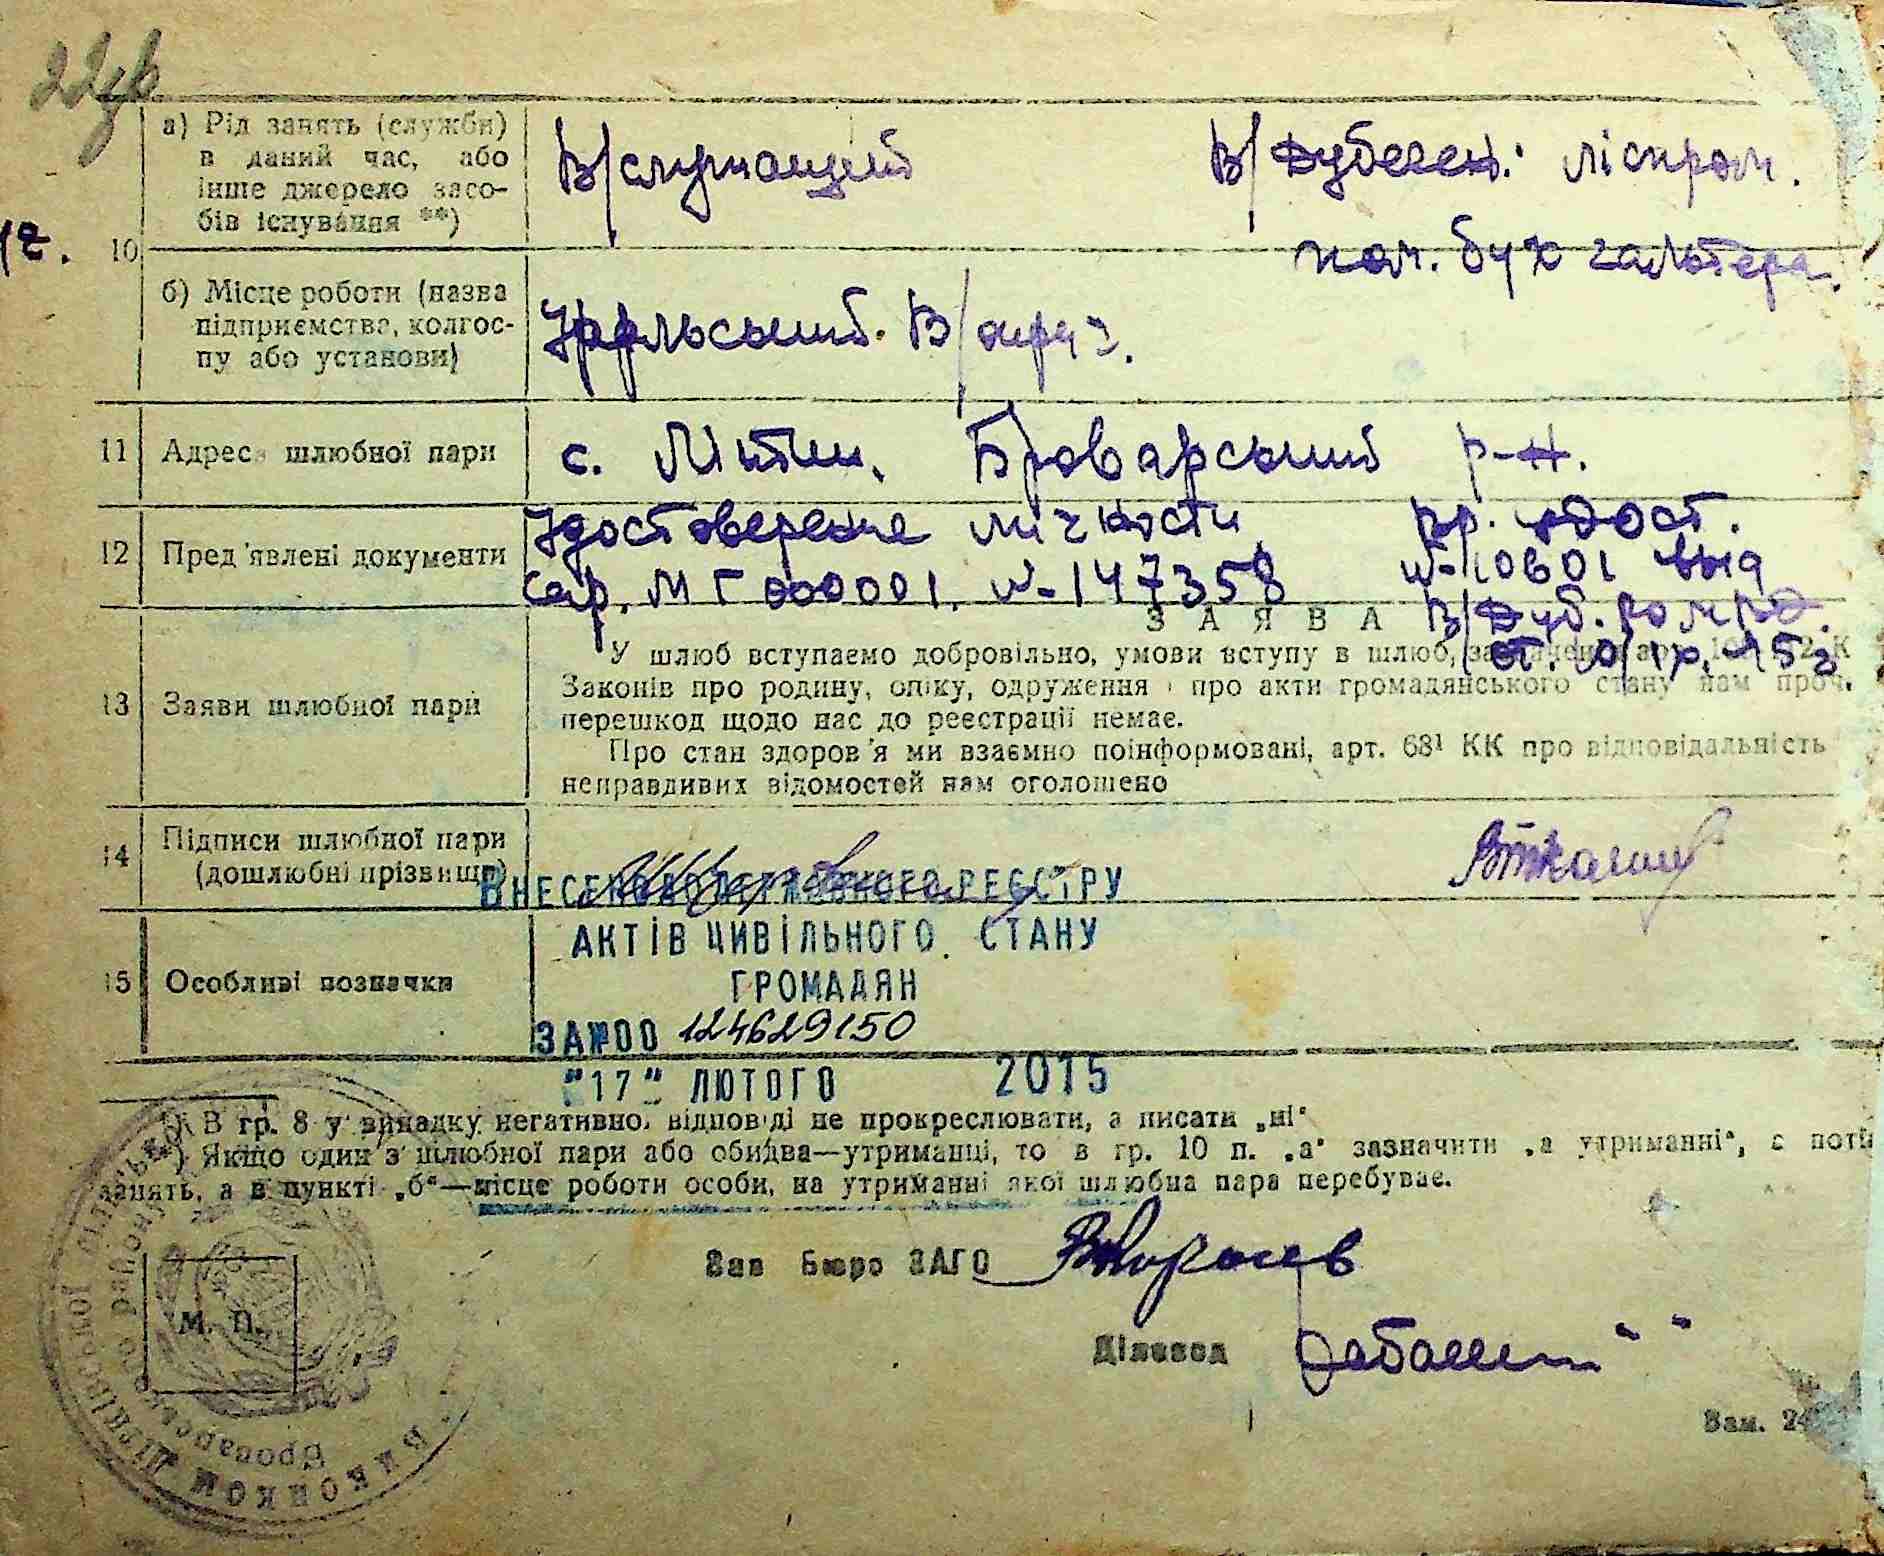 10
а) Рід занять (служби)
в даний час, або
інше джерело засо-
бів існування **)
В/служащий
В/ Дубечен. ліспром.
пом. бухгалтера.
б) Місце роботи (назва
підприємства, колгос-
пу або установи)
Уральський В/округ.
11 Адреса шлюбної пари
с. Літки, Броварський р-н.
12 Пред'явлені документи
Удостоверение личности
Сер. МГ 000001. N-147358
вр. удост.
N-10601 выд
В/Дуб.
13 Заяви шлюбної пари
ЗАЯВА
У шлюб вступаємо добровільно, умови вступу в шлюб,
Законів про родину, опіку, одруження і про акти громадянського стану нам проч.
перешкод щодо нас до реєстрації немає.
Про стан здоров'я ми взаємно поінформовані, арт. 68¹ КК про відповідальність
неправдивих відомостей нам оголошено
14 Підписи шлюбної пари
(дошлюбні прізвища)
ВНЕСЕНО ДО ДЕРЖАВНОГО РЕЄСТРУ
АКТІВ ЦИВІЛЬНОГО СТАНУ
ГРОМАДЯН
15 Особливі позначки
ЗА №00 124629150
"17" ЛЮТОГО 2015
*) В гр. 8 у випадку негативно. відповіді не прокреслювати, а писати „ні"
**) Якщо один з шлюбної пари або обидва—утриманці, то в гр. 10 п. „а" зазначити „а утриманні",
занять, а в пункті „б"—місце роботи особи, на утриманні якої шлюбна пара перебуває.
Зав Бюро ЗАГС
Діловод
М. П.
Зам. 24